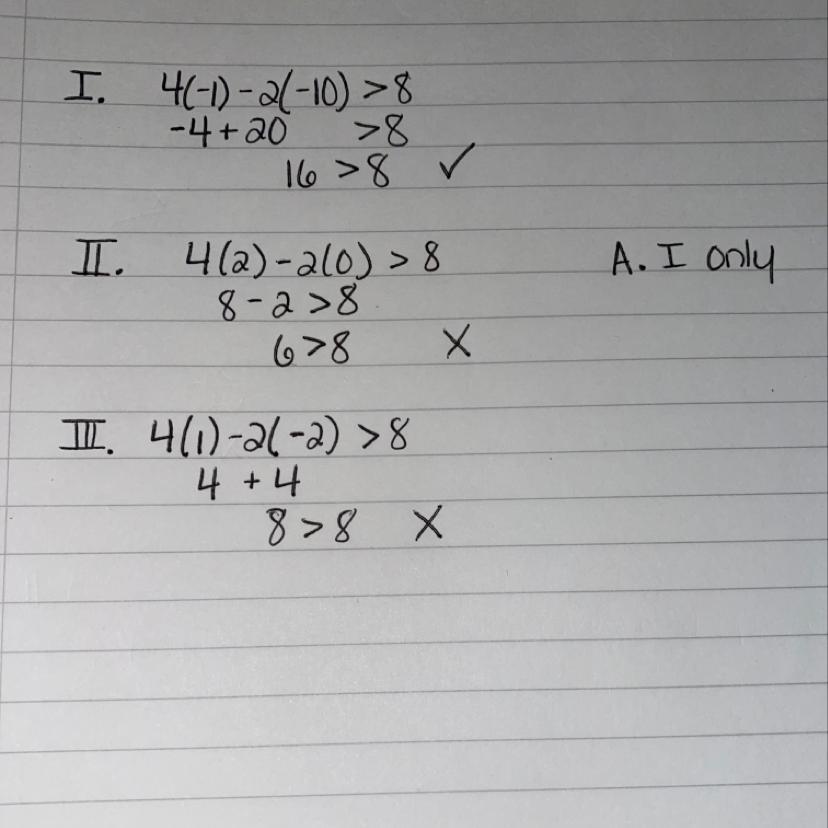 I. 4(-1) - 2(-10) > 8
-4 + 20 > 8
16 > 8 ✓
II. 4(2) - 2(0) > 8 A. I only
8 - 2 > 8
6 > 8 X
III. 4(1) - 2(-2) > 8
4 + 4
8 > 8 X